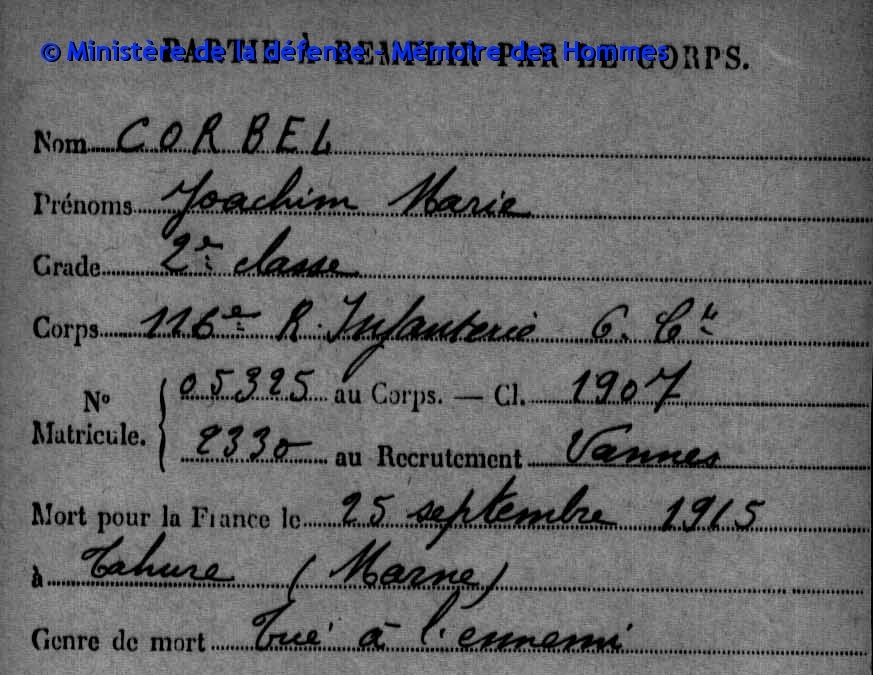 © Ministère de la défense - Mémoire des Hommes
PARTIE À REMPLIR PAR LE CORPS.
Nom CORBEL
Prénoms Joachim Marie
Grade 2e classe
Corps 116e R. Infanterie 6. Cie
No Matricule. 05325 au Corps. — Cl. 1907
2330 au Recrutement Vannes
Mort pour la France le 25 septembre 1915
à Tahure (Marne)
Genre de mort Tué à l'ennemi